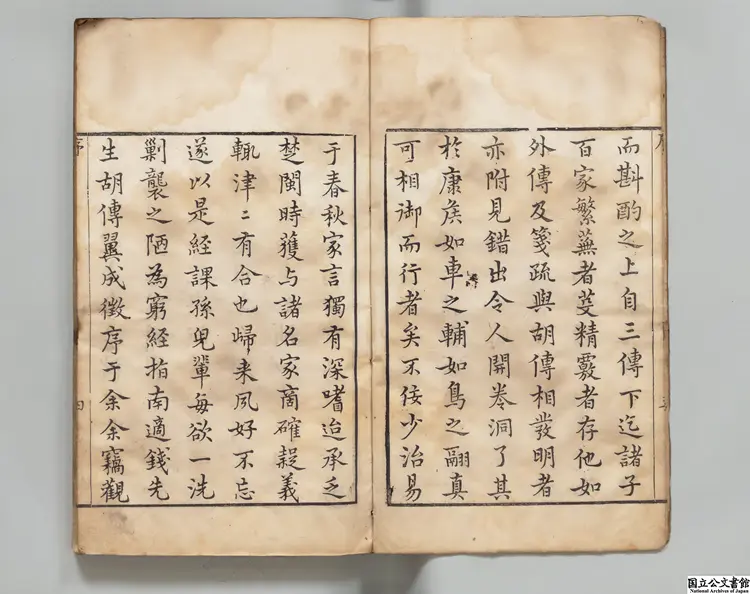 而斟酌之上自三傳下迄諸子
百家繁蕪者芟精覈者存他如
外傳及箋疏與胡傳相發明者
亦附見錯出令人開卷洞了其
於康侯如車之輔如鳥之翮真
可相御而行者矣不佞少治易
于春秋家言獨有深嗜迨承乏
楚閩時獲与諸名家商確疑義
輒津〻有合也歸来夙好不忘
遂以是經課孫兒輩每欲一洗
剿襲之陋為窮經指南適錢先
生胡傳翼成徵序于余余竊觀
序
四
国立公文書館
National Archives of Japan